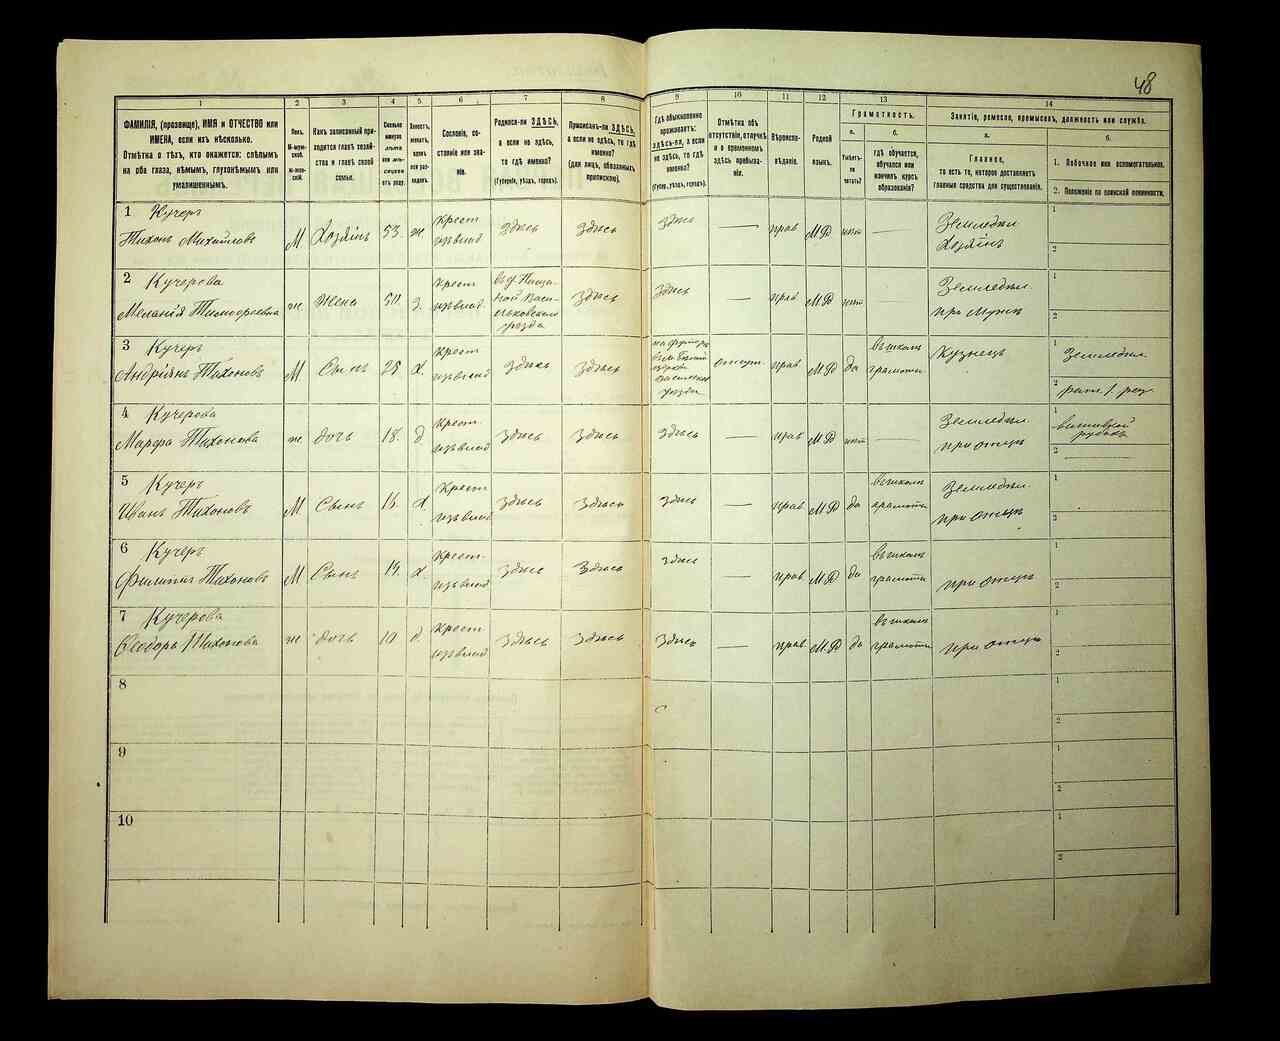 48
1 2 3 4 5 6 7 8 9 10 11 12 13 14
ФАМИЛІЯ, (прозвище), ИМЯ и ОТЧЕСТВО или
ИМЕНА, если ихъ нѣсколько.
Отмѣтка о тѣхъ, кто окажется: слѣпымъ
на оба глаза, нѣмымъ, глухонѣмымъ или
умалишеннымъ.
Полъ.
М-муж-
ской.
Ж-жен-
скій.
Какъ записанный при-
ходится главѣ хозяй-
ства и главѣ своей
семьи.
Сколько
минуло
лѣтъ
или мѣ-
сяцевъ
отъ роду.
Холостъ,
женатъ,
вдовъ
или раз-
веденъ.
Сословіе, со-
стояніе или зва-
ніе.
Родился-ли ЗДѢСЬ,
а если не здѣсь,
то гдѣ именно?
(Губернія, уѣздъ, городъ).
Приписанъ-ли ЗДѢСЬ,
а если не здѣсь, то гдѣ
именно?
(для лицъ, обязанныхъ
припискою).
Гдѣ обыкновенно
проживаетъ:
здѣсь-ли, а если
не здѣсь, то гдѣ
именно?
(Губер., уѣздъ, городъ).
Отмѣтка объ
отсутствіи, отлучкѣ
и о временномъ
здѣсь пребыва-
ніи.
Вѣроиспо-
вѣданіе.
Родной
языкъ.
Грамотность.
а.
Умѣетъ-
ли
читать?
б.
гдѣ обучается,
обучался или
кончилъ курсъ
образованія?
Занятіе, ремесло, промыселъ, должность или служба.
а.
Главное,
то есть то, которое доставляетъ
главныя средства для существованія.
б.
1. Побочное или вспомогательное.
2. Положеніе по воинской повинности.
1 Кучеръ
Тихонъ Михайловъ М Хозяинъ 53 ж. Крест изъ влад Здѣсь Здѣсь Здѣсь — прав МР нѣт — Земледѣл Хозяинъ
1
2
2 Кучерова
Меланія Тимофеевна ж. Жена 50 з. Крест изъ влад въ д. Песча-
ной Васи-
льковскаго
уѣзда Здѣсь Здѣсь — прав МР нѣт Земледѣл при мужѣ
1
2
3 Кучеръ
Андріянъ Тихоновъ М Сынъ Х. Крест изъ влад Здѣсь Здѣсь на хуторѣ
уѣзда отсут. прав МР да въ школѣ грамоты Кузнецъ
1 Земледѣл
2
4 Кучерова
Марфа Тихонова ж дочь 18. д Крест. изъ влад Здѣсь Здѣсь Здѣсь — прав МР нѣт — Земледѣл при отцѣ
1
2
5 Кучеръ
Иванъ Тихоновъ М Сынъ Х. Крест изъ влад Здѣсь Здѣсь Здѣсь — прав МР да въ школѣ грамоты Земледѣл при отцѣ
1
2
6 Кучеръ
Филиппъ Тихоновъ М Сынъ 14. Х. Крест. изъ влад Здѣсь Здѣсь Здѣсь — прав МР да въ школѣ грамоты при отцѣ
1
2
7 Кучерова
Ѳеодора Тихонова ж дочь 10 д Крест. изъ влад Здѣсь Здѣсь Здѣсь — прав МР да въ школѣ грамоты при отцѣ
1
2
8
1
2
9
1
2
10
1
2